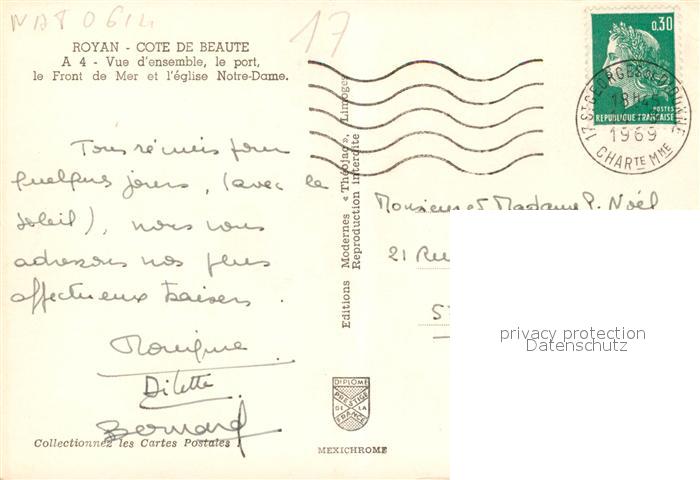 NAT 0614
17
ROYAN - COTE DE BEAUTE
A 4 - Vue d'ensemble, le port,
le Front de Mer et l'église Notre-Dame.
Tous réunis pour
quelques jours, (avec le
soleil), nous vous
adressons nos plus
affectueux baisers.
Monique
Bernard
Collectionnez les Cartes Postales !
Editions Modernes « Théojac », Limoges
Reproduction interdite
DIPLOME
PRESTIGE
DE LA
FRANCE
MEXICHROME
0,30
POSTES
REPUBLIQUE FRANÇAISE
17 ST GEORGES DE DIDONNE
18 H
1969
CHARTE MME
Monsieur et Madame P. Noël
21 Rue
5
privacy protection
Datenschutz